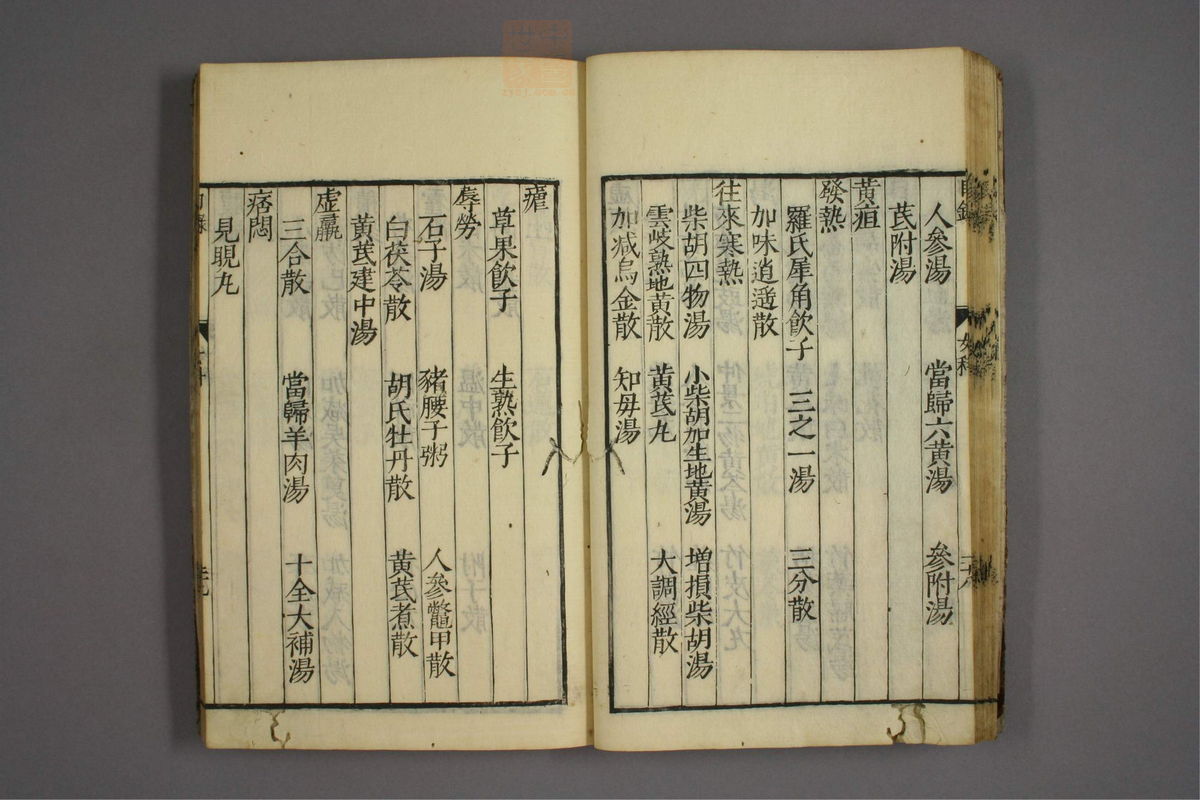 人參湯 當歸六黃湯 參附湯
芪附湯
黃疸
發熱
羅氏犀角飲子 三之一湯 三分散
加味逍遙散
往來寒熱
柴胡四物湯 小柴胡加生地黃湯 增損柴胡湯
雲岐熟地黃散 黃芪丸 大調經散
加减烏金散 知母湯
瘧
草果飲子 生熟飲子
蓐勞
石子湯 豬腰子粥 人參鼈甲散
白茯苓散 胡氏牡丹散 黃芪煮散
黃芪建中湯
虛羸
三合散 當歸羊肉湯 十全大補湯
痞悶
見晛丸